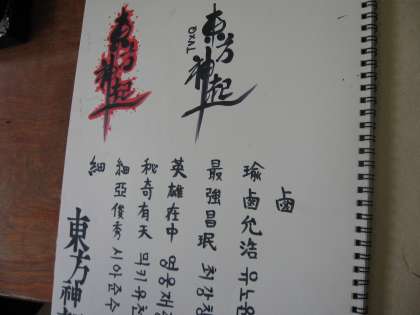 東方神起
東方神起
TVXQ
鹵
瑜鹵允浩 유노윤
最強昌珉 최강창
英雄在中 영웅재
秘奇有天 믹키유천
細亞俊秀 시아준수
細
東方神